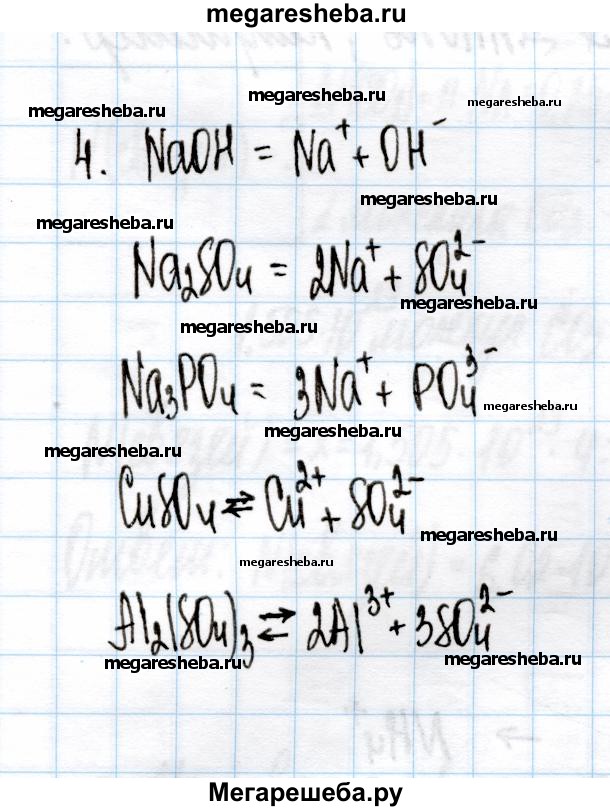 megaresheba.ru
megaresheba.ru megaresheba.ru megaresheba.ru
4. NaOH = Na⁺ + OH⁻
megaresheba.ru
megaresheba.ru
Na₂SO₄ = 2Na⁺ + SO₄²⁻
megaresheba.ru
megaresheba.ru
Na₃PO₄ = 3Na⁺ + PO₄³⁻
megaresheba.ru
megaresheba.ru
megaresheba.ru
CuSO₄ ⇄ Cu²⁺ + SO₄²⁻
megaresheba.ru
megaresheba.ru
Al₂(SO₄)₃ ⇄ 2Al³⁺ + 3SO₄²⁻
megaresheba.ru megaresheba.ru
Мегарешеба.ру